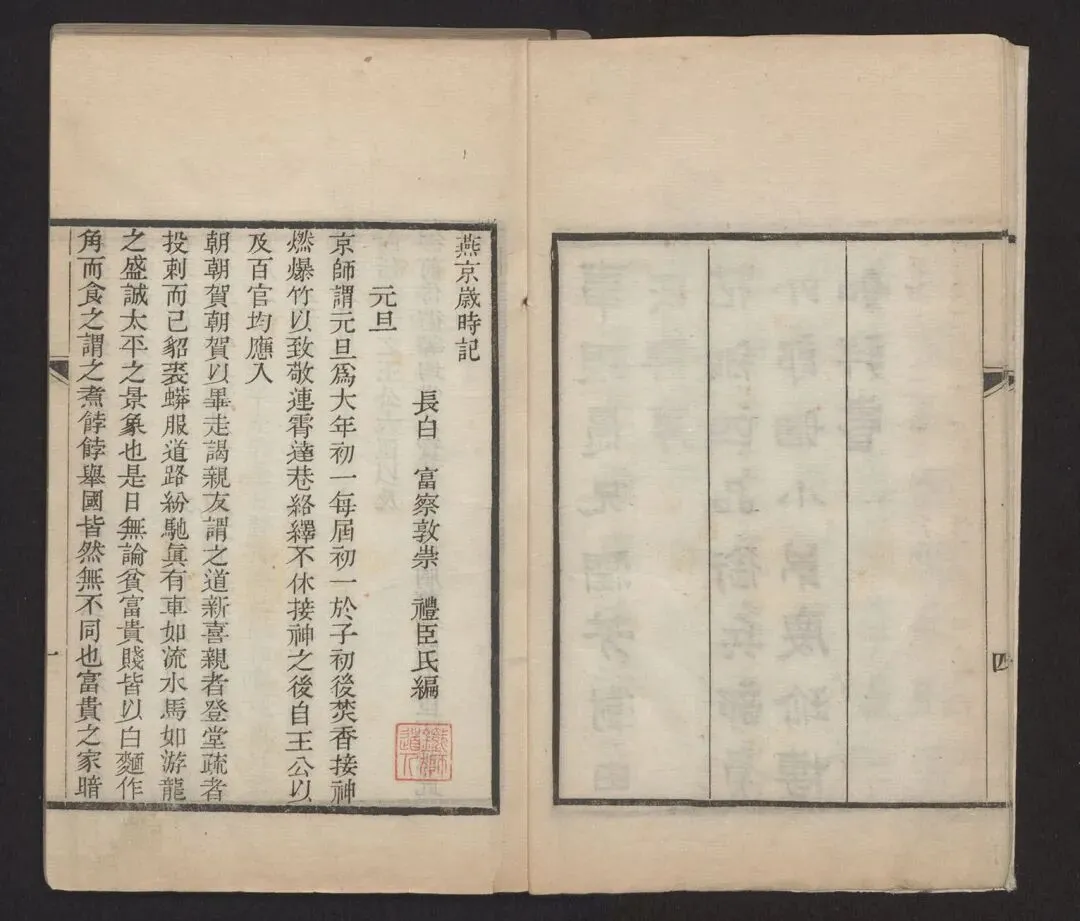 四
燕京歲時記
長白　富察敦崇　禮臣氏編
元旦
京師謂元旦爲大年初一每屆初一於子初後焚香接神
燃爆竹以致敬連霄達巷絡繹不休接神之後自王公以
及百官均應入
朝朝賀朝賀以畢走謁親友謂之道新喜親者登堂疏者
投刺而已貂裘蟒服道路紛馳眞有車如流水馬如游龍
之盛誠太平之景象也是日無論貧富貴賤皆以白麵作
角而食之謂之煮餑餑舉國皆然無不同也富貴之家暗
一